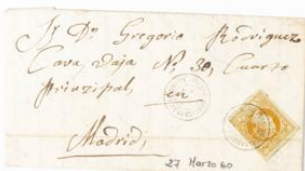 Sr Dn Gregorio Rodriguez
Cava vaja Nº 30, Cuarto
Prinzipal, en
Madrid,
27 Marzo 60